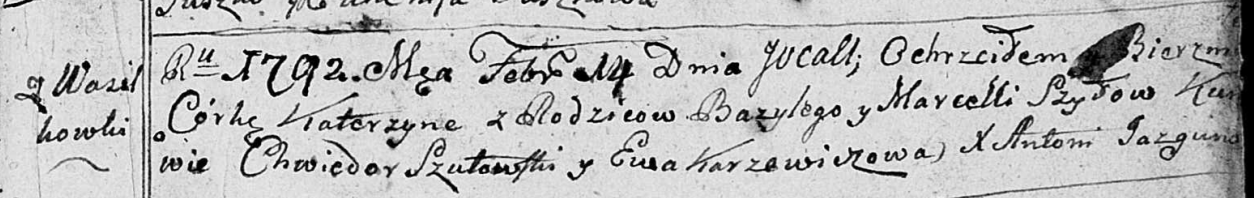 z Wasil
kowki
Ru 1792. Mca Febr 14 Dnia JVCall; Ochrzciłem y Bierzm
Córkę Katerzynę z Rodzicow Bazylego y Marcelli Szyłow Kum
wie Chwiedor Szutowski y Ewa Karzewiczowa) X Antoni Jazguno